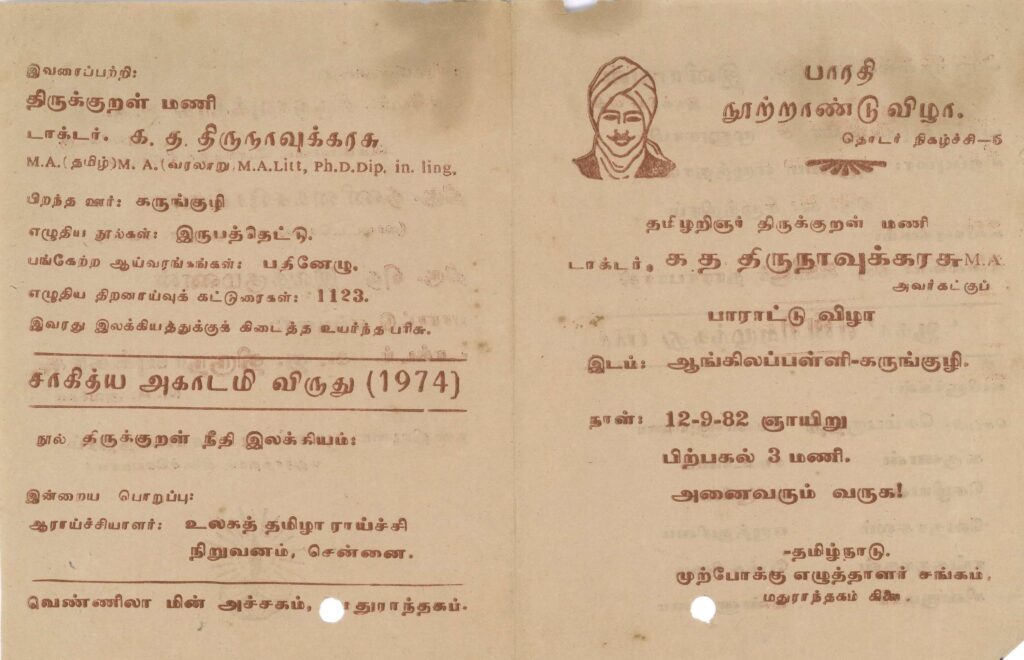 இவரைப்பற்றி:
திருக்குறள் மணி
டாக்டர். க. த. திருநாவுக்கரசு
M.A.(தமிழ்) M. A.(வரலாறு) M.A.Litt, Ph.D.Dip. in. ling.
பிறந்த ஊர்: கருங்குழி
எழுதிய நூல்கள்: இருபத்தெட்டு.
பங்கேற்ற ஆய்வரங்கங்கள்: பதினேழு.
எழுதிய திறனாய்வுக் கட்டுரைகள்: 1123.
இவரது இலக்கியத்துக்குக் கிடைத்த உயர்ந்த பரிசு.
சாகித்ய அகாடமி விருது (1974)
நூல் திருக்குறள் நீதி இலக்கியம்:
இன்றைய பொறப்பு:
ஆராய்ச்சியாளர்: உலகத் தமிழா ராய்ச்சி
நிறுவனம், சென்னை.
வெண்ணிலா மின் அச்சகம், துராந்தகம்.
பாரதி
நூற்றாண்டு விழா.
தொடர் நிகழ்ச்சி—5
தமிழறிஞர் திருக்குறள் மணி
டாக்டர். க த திருநாவுக்கரசு M.A.
அவர்கட்குப்
பாராட்டு விழா
இடம்: ஆங்கிலப்பள்ளி-கருங்குழி.
நாள்: 12-9-82 ஞாயிறு
பிற்பகல் 3 மணி.
அனைவரும் வருக!
-தமிழ்நாடு.
முற்போக்கு எழுத்தாளர் சங்கம்,
மதுராந்தகம் கிளை